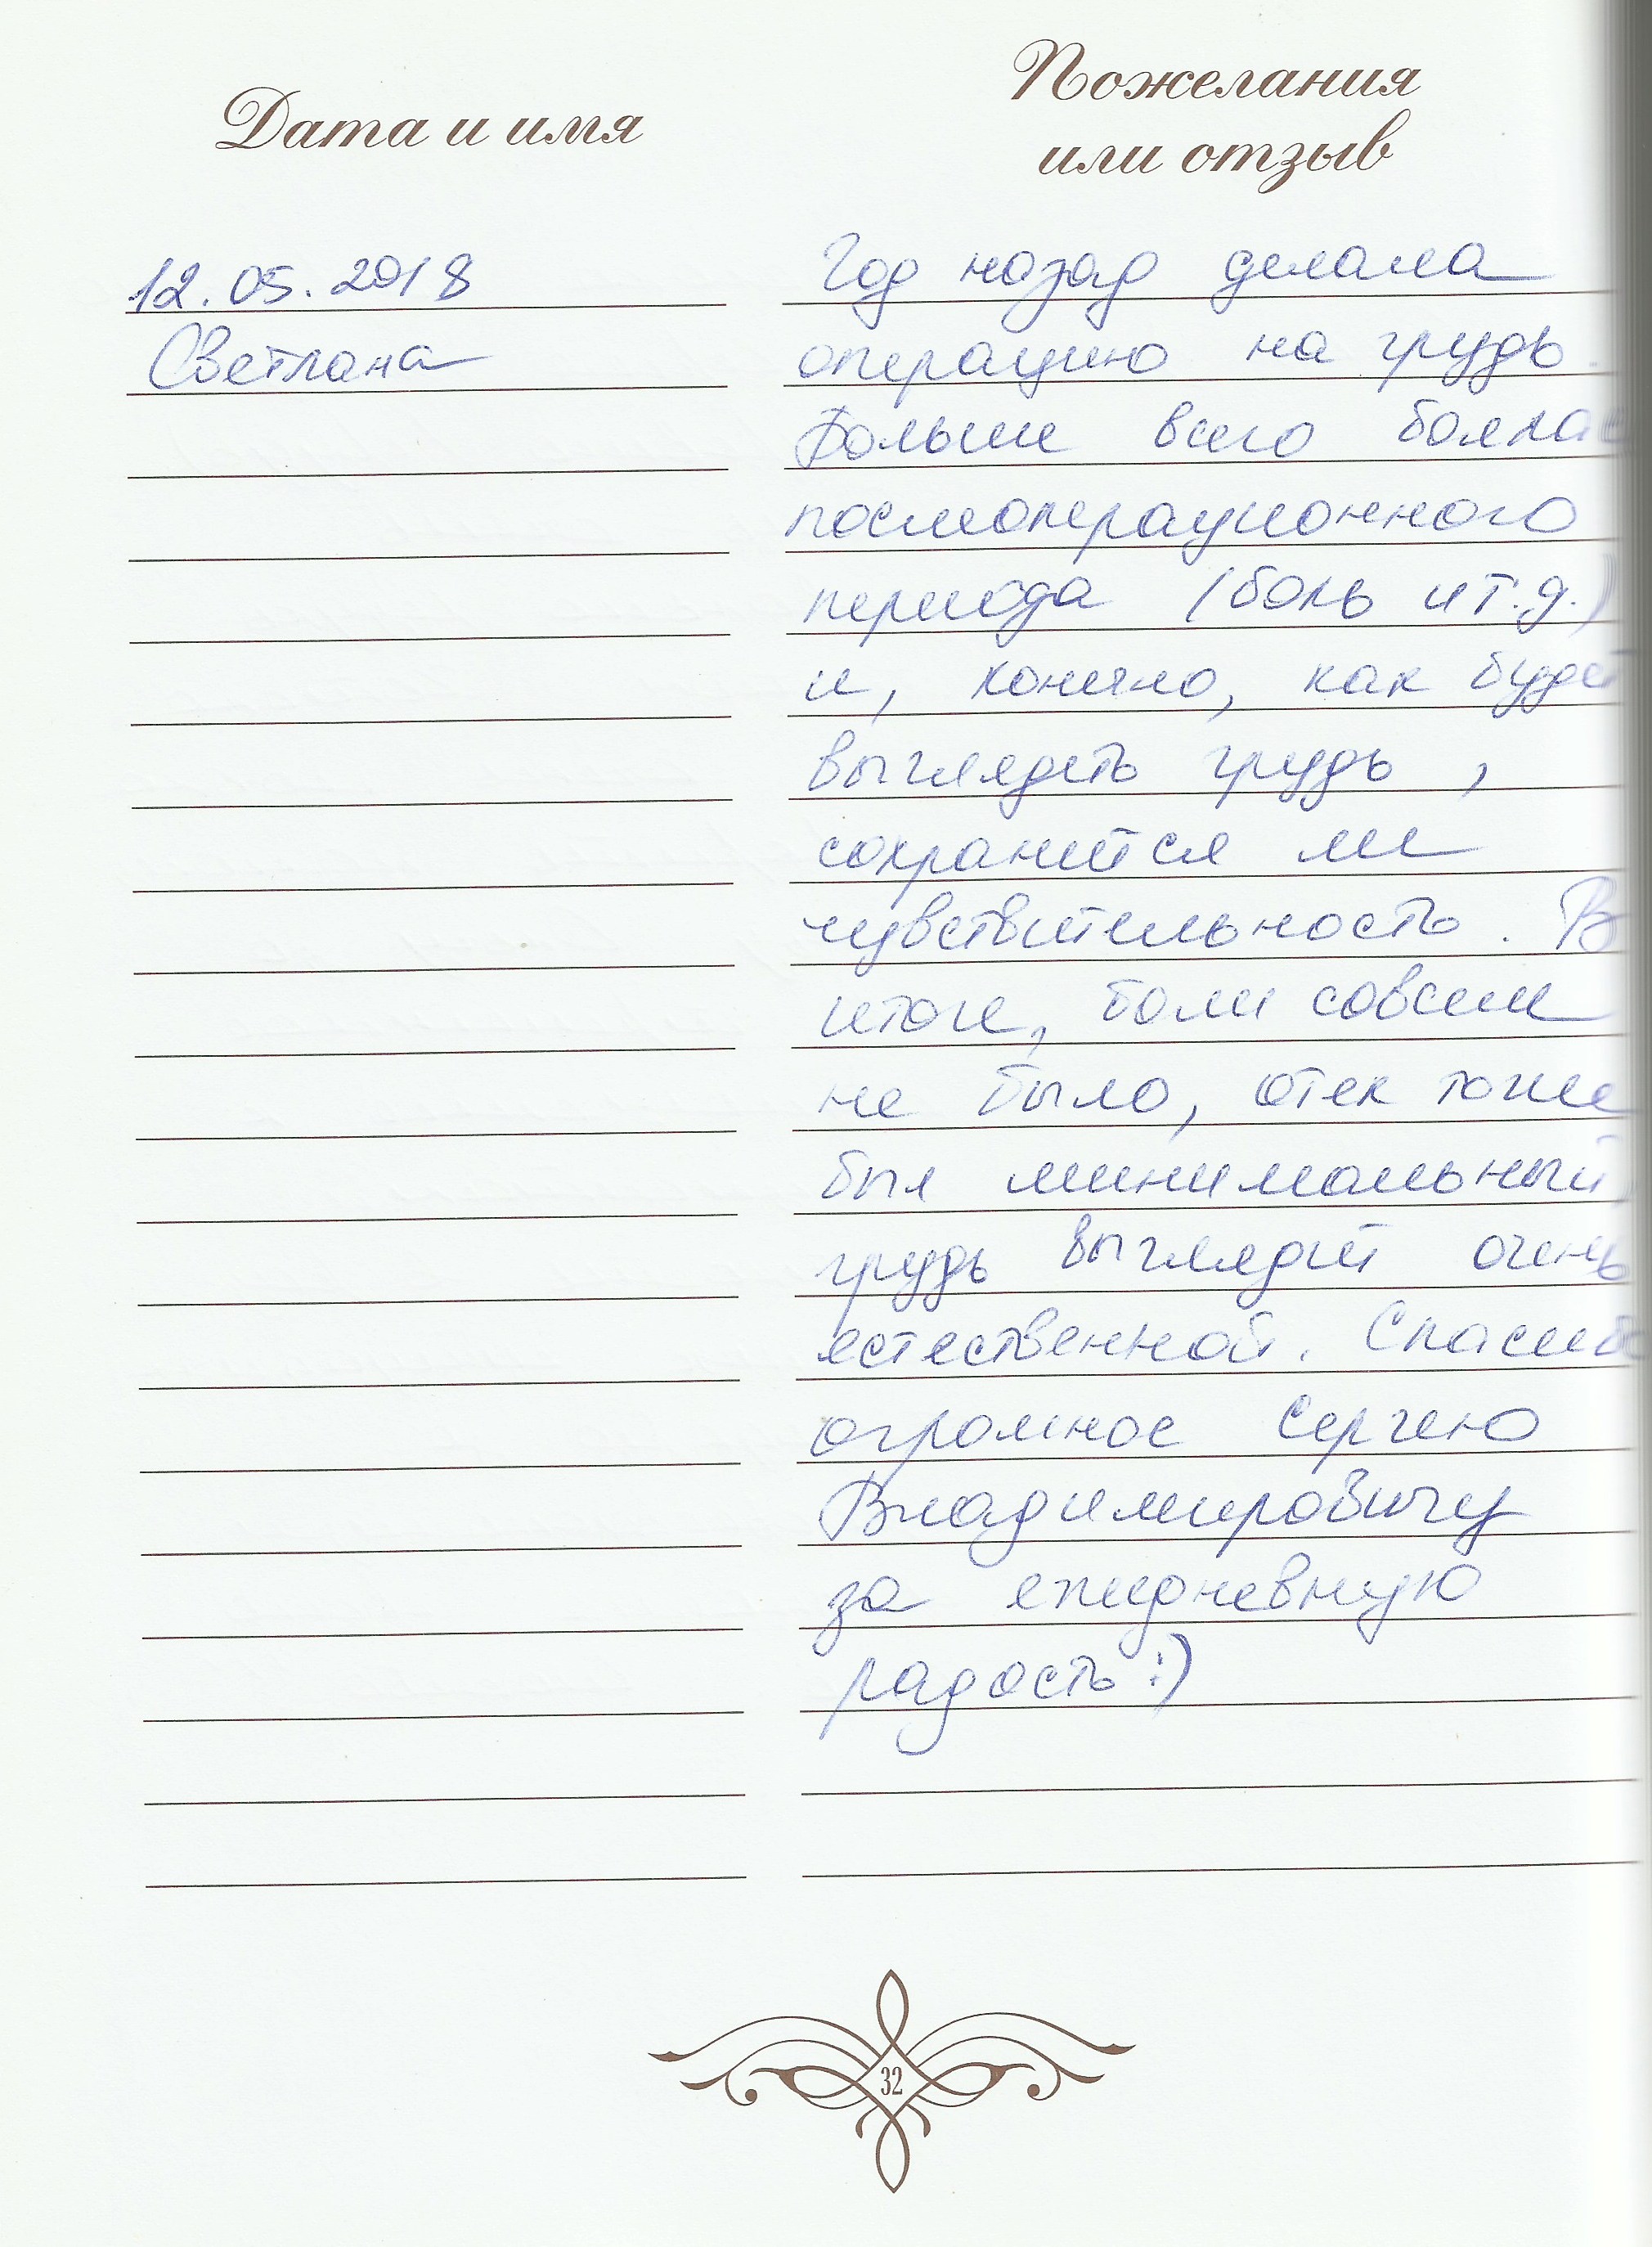 Дата и имя
Пожелания
или отзыв
12.05.2018
Светлана
Год назад делала
операцию на грудь.
Больше всего боялас
послеоперационного
периода (боль и т.д.)
и, конечно, как будет
выглядеть грудь,
сохранится ли
чувствительность. В
итоге, боли совсем
не было, отек тоже
был минимальный,
грудь выглядит очень
естественной. Спасибо
огромное Сергею
Владимировичу
за ежедневную
радость :)
32